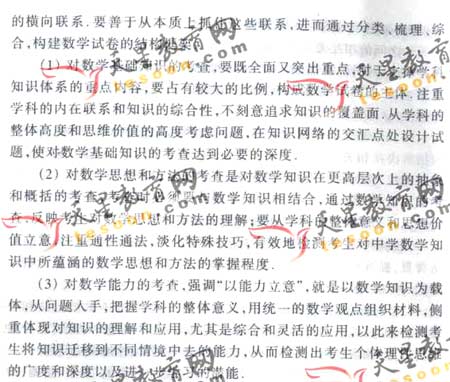 的横向联系.要善于从本质上抓住这些联系,进而通过分类、梳理、综
合,构建数学试卷的结构框架.
(1) 对数学基础知识的考查,要既全面又突出重点,对于
知识体系的重点内容,要占有较大的比例,构成数学试卷的主体.注重
学科的内在联系和知识的综合性,不刻意追求知识的覆盖面.从学科的
整体高度和思维价值的高度考虑问题,在知识网络的交汇点处设计试
题,使对数学基础知识的考查达到必要的深度.
(2) 对数学思想和方法的考查是对数学知识在更高层次上的抽象
和概括的考查,考查时必须要与数学知识相结合,通过数学知识的考
查,反映考生对数学思想和方法的理解;要从学科的整体意义和思想价
值立意,注重通性通法,淡化特殊技巧,有效地检测考生对中学数学知
识中所蕴涵的数学思想和方法的掌握程度.
(3) 对数学能力的考查,强调“以能力立意”,就是以数学知识为载
体,从问题入手,把握学科的整体意义,用统一的数学观点组织材料,侧
重体现对知识的理解和应用,尤其是综合和灵活的应用,以此来检测考
生将知识迁移到不同情境中去的能力,从而检测出考生个体理性思维
的广度和深度以及进一步学习的潜能.
天星教育网
tesoon.com
天星教育网
tesoon.com
天星教育网
tesoon.com
天星教育网
tesoon.com